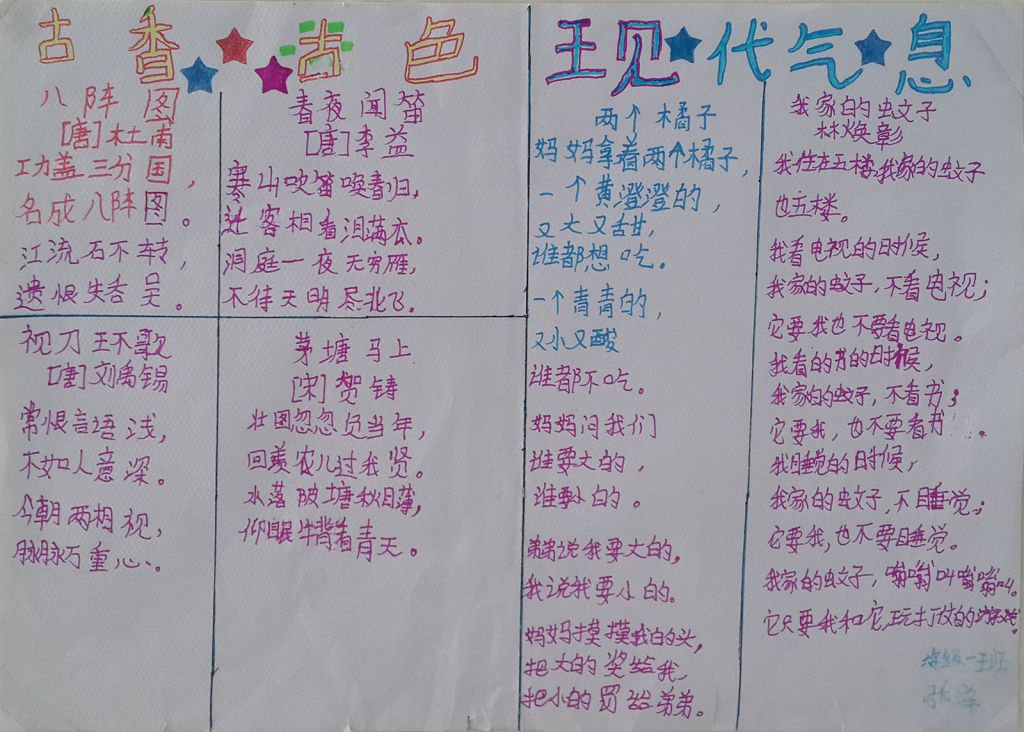 古香古色
八阵图
[唐]杜甫
功盖三分国，
名成八阵图。
江流石不转，
遗恨失吞吴。
春夜闻笛
[唐]李益
寒山吹笛唤春归，
迁客相看泪满衣。
洞庭一夜无穷雁，
不待天明尽北飞。
视刀环歌
[唐]刘禹锡
常恨言语浅，
不如人意深。
今朝两相视，
脉脉万重心。
茅塘马上
[宋]贺铸
壮图忽忽负当年，
回羡农儿过我贤。
水落陂塘秋日薄，
仰眠牛背看青天。
现代气息
两个橘子
妈妈拿着两个橘子，
一个黄澄澄的，
又大又甜，
谁都想吃。
一个青青的，
又小又酸
谁都不吃。
妈妈问我们
谁要大的，
谁要小的。
弟弟说我要大的，
我说我要小的。
妈妈摸摸我的头，
把大的奖给我，
把小的罚给弟弟。
我家的蚊子
林焕彰
我住在五楼，我家的蚊子
也五楼。
我看电视的时候，
我家的蚊子，不看电视；
它要我也不要看电视。
我看的书的时候，
我家的蚊子，不看书；
它要我，也不要看书。
我睡觉的时候，
我家的蚊子，不睡觉；
它要我，也不要睡觉。
我家的蚊子，嗡嗡叫嗡嗡叫。
它只要我和它，玩打仗的游戏。
年级一班
张